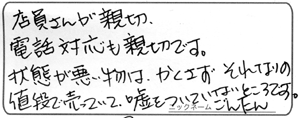 店員さんが親切、
電話対応も親切です。
状態が悪い物は、かくさず それなりの
値段で売っていて、嘘をついていないところです。
ニックネーム ごんたん